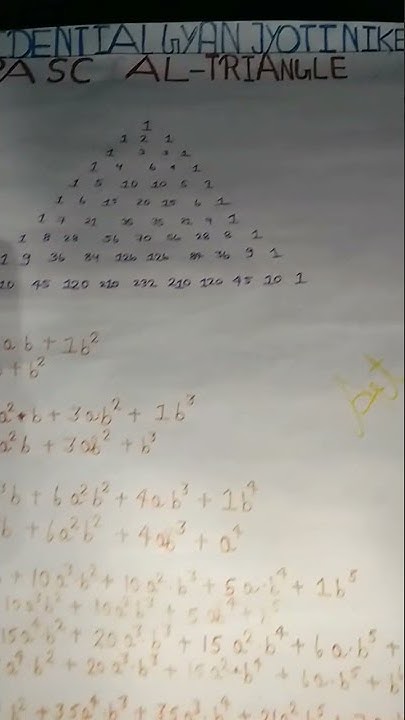 DENTIAL GYAN JYOTI NIKE
PASCAL-TRIANGLE
1
1 2 1
1 3 3 1
1 4 6 4 1
1 5 10 10 5 1
1 6 15 20 15 6 1
1 7 21 35 35 21 7 1
1 8 28 56 70 56 28 8 1
1 9 36 84 126 126 84 36 9 1
10 45 120 210 232 210 120 45 10 1
ab + 1b²
+ b²
A+
a²·b + 3ab² + 1b³
a²b + 3ab² + b³
³b + 6a²b² + 4ab³ + 1b⁴
b + 6a²b² + 4ab³ + a⁴
+ 10a³·b² + 10a²·b³ + 5a·b⁴ + 1b⁵
10a³b² + 10a²b³ + 5ab⁴ + b⁵
15a⁴b² + 20a³·b³ + 15a²·b⁴ + 6a·b⁵ +
a⁴b² + 20a³·b³ + 15a²·b⁴ + 6a·b⁵ + b⁶
b² + 35a⁴·b³ + 35a³·b⁴ + 21a²b⁵